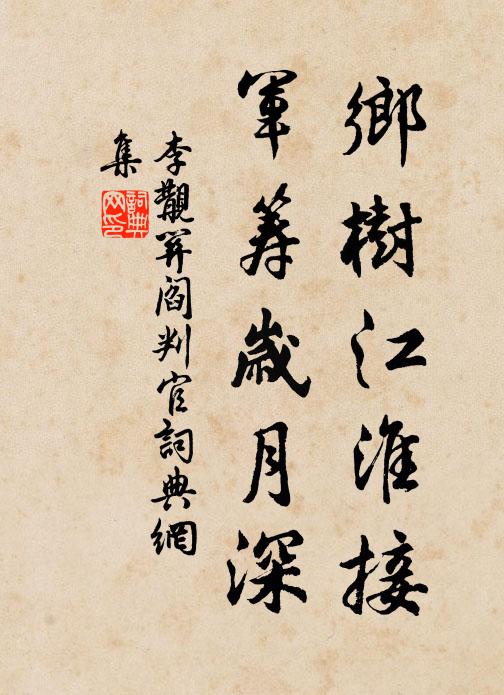 鄉樹江淮接
軍籌歲月深
李覯冥閻判官詞典網
集
詞典
网印